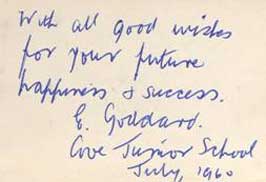 With all good wishes
for your future
happiness & success.
E. Goddard.
Cove Junior School
July, 1960